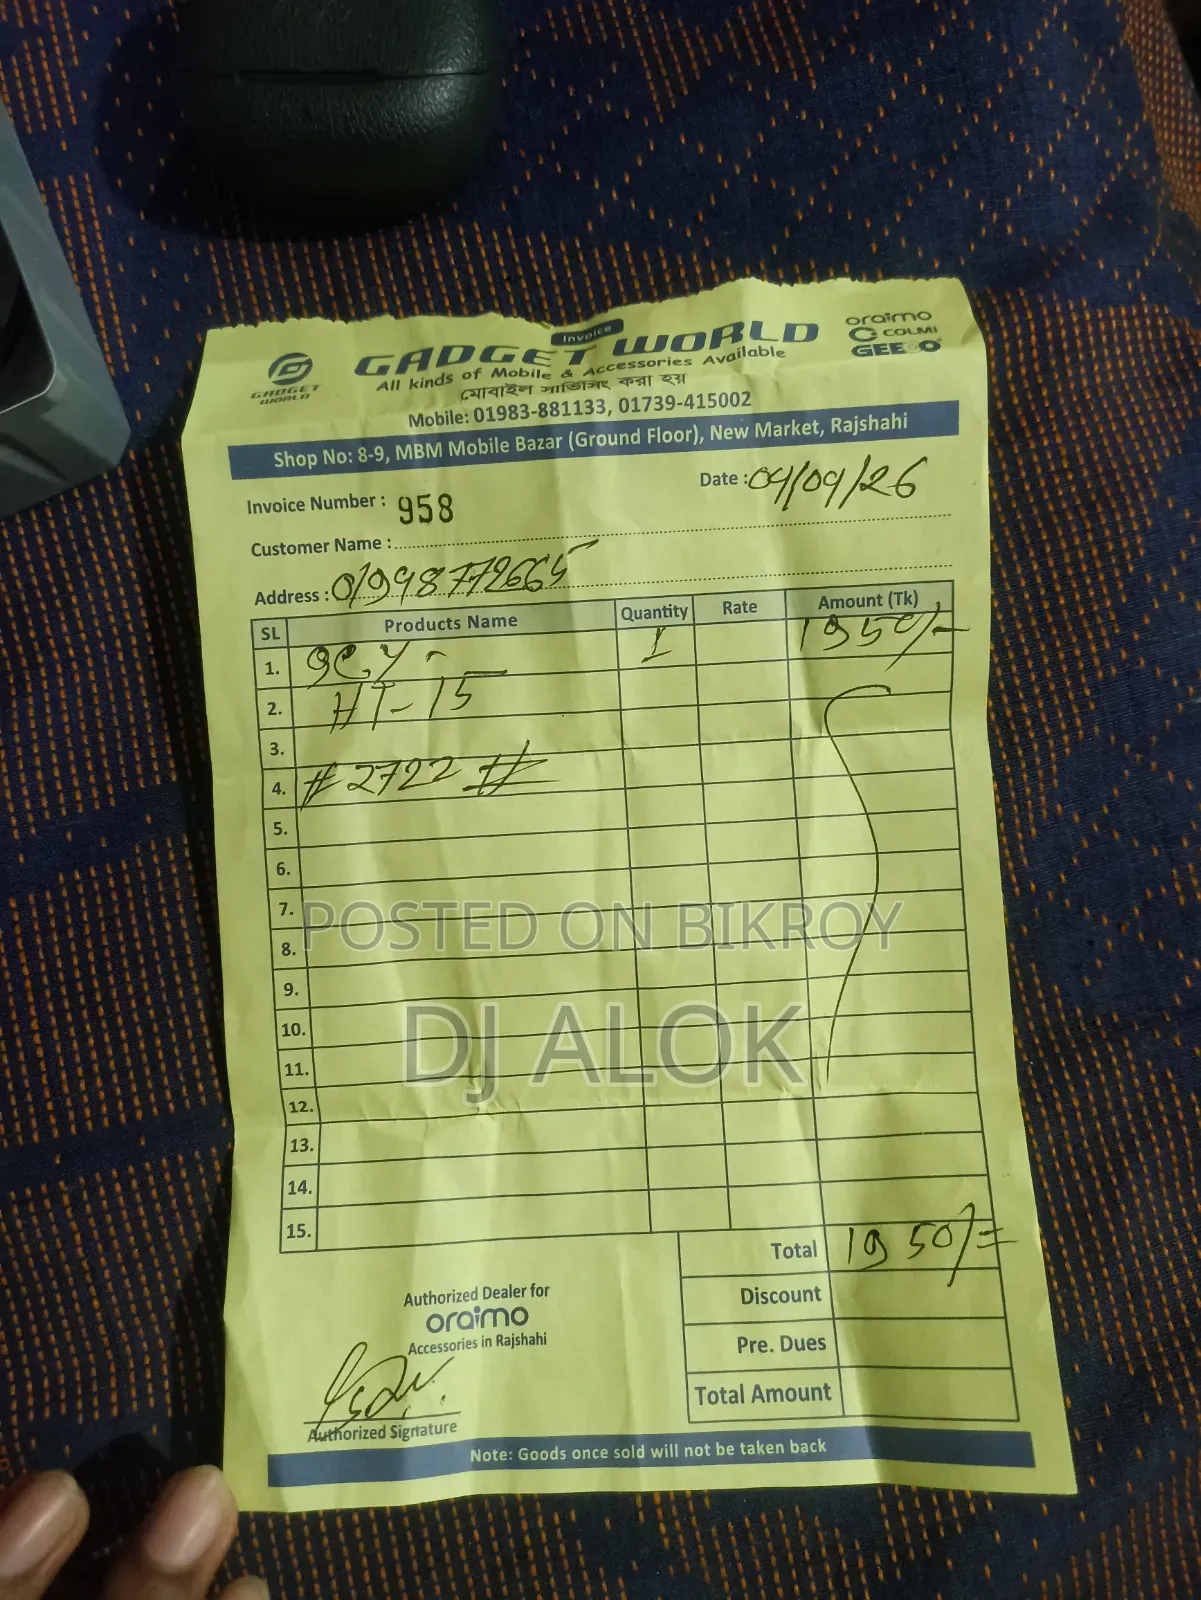 Invoice
GADGET WORLD
GADGET WORLD
oraimo
COLMI
GEEOO
All kinds of Mobile & Accessories Available
মোবাইল সার্ভিসিং করা হয়
Mobile: 01983-881133, 01739-415002
Shop No: 8-9, MBM Mobile Bazar (Ground Floor), New Market, Rajshahi
Invoice Number : 958
Date : 04/09/26
Customer Name :
Address : 01998772665
SL Products Name Quantity Rate Amount (Tk)
1. QCY - 1 1950/-
2. HT-15
3.
4. #2722#
5.
6.
7.
POSTED ON BIKROY
8.
9.
10.
DJ ALOK
11.
12.
13.
14.
15.
Total 1950/=
Discount
Pre. Dues
Total Amount
Authorized Dealer for
oraimo
Accessories in Rajshahi
Authorized Signature
Note: Goods once sold will not be taken back